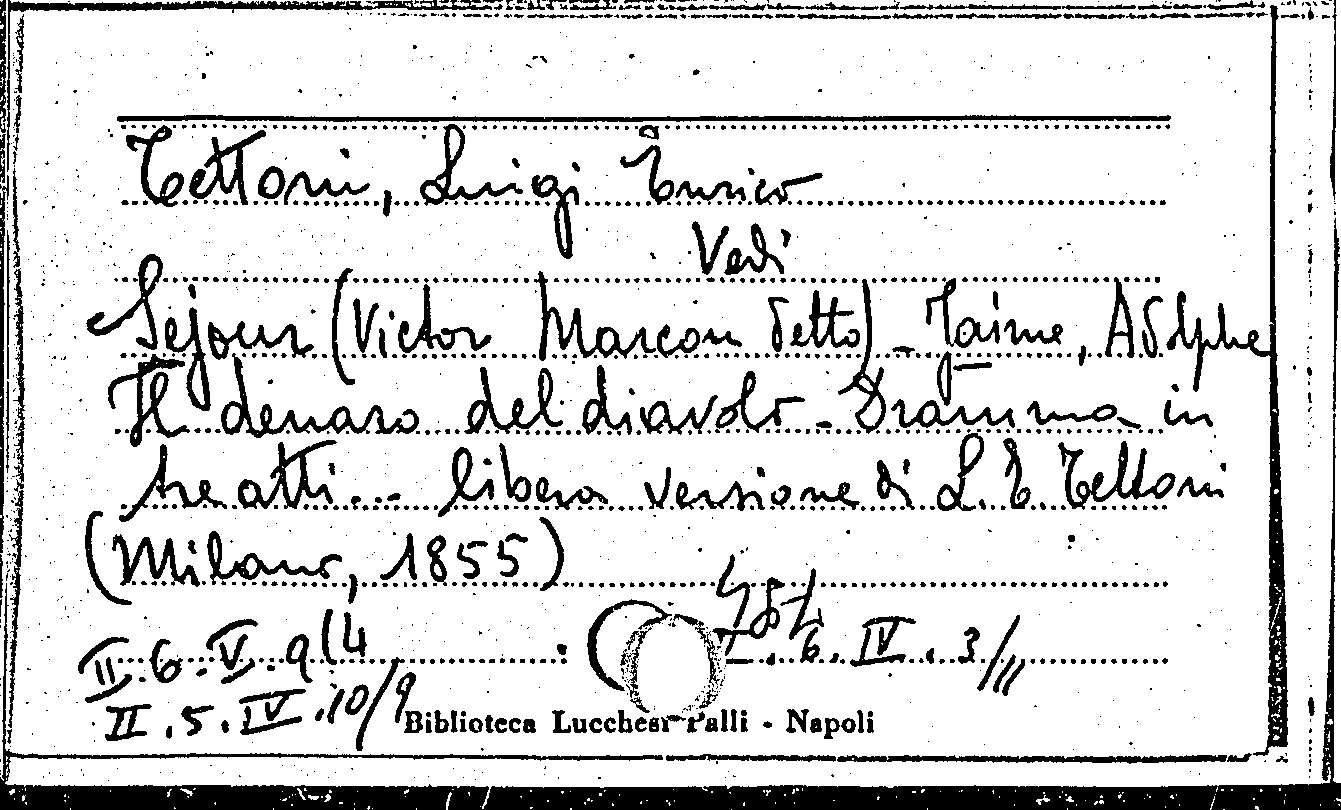 Tettoni, Luigi Enrico
Vedi
Sejour (Victor Marcou detto) - Jaime, Adolphe
Il denaro del diavolo - Dramma in
tre atti... libera versione di L. E. Tettoni
(Milano, 1855)
II.6.V.9(4
6.IV.3/III
II.5.IV.10/9
Biblioteca Lucchesi Palli - Napoli